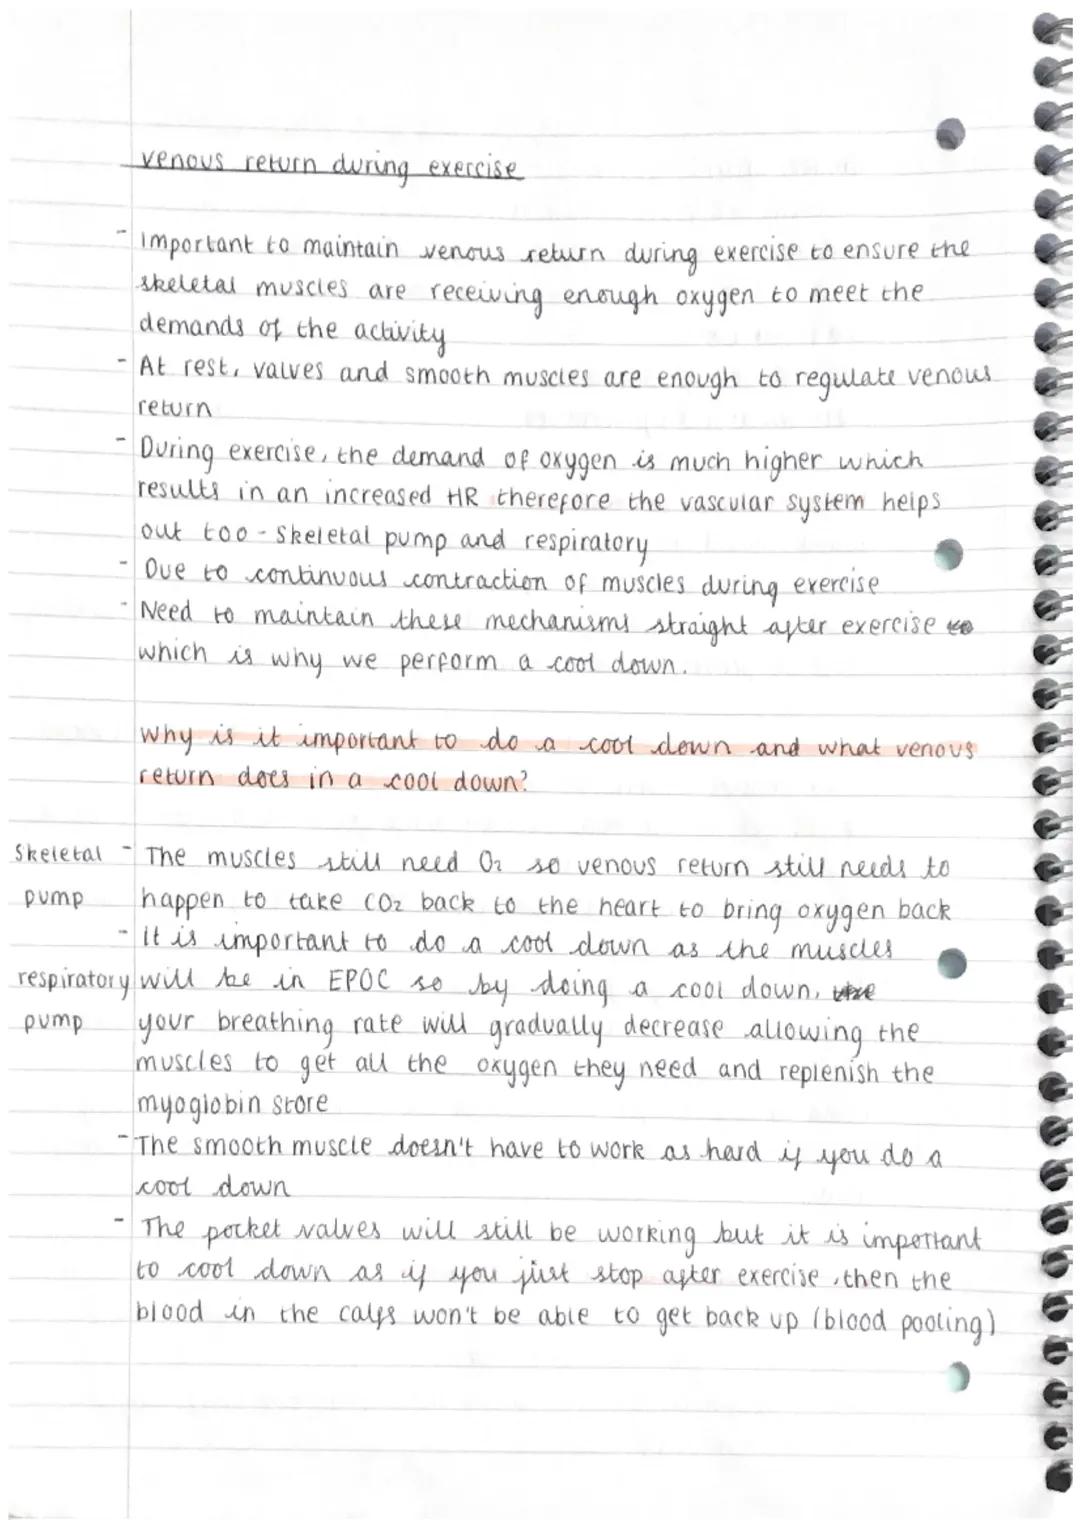 venous return during exercise
- Important to maintain venous return during exercise to ensure the
skeletal muscles are receiving enough oxygen to meet the
demands of the activity
- At rest, valves and smooth muscles are enough to regulate venous
return
- During exercise, the demand of oxygen is much higher which
results in an increased HR therefore the vascular system helps
out too - Skeletal pump and respiratory
- Due to continuous contraction of muscles during exercise
- Need to maintain these mechanisms straight after exercise
which is why we perform a cool down.
Why is it important to do a cool down and what venous
return does in a cool down?
Skeletal - The muscles still need O2 so venous return still needs to
pump happen to take CO2 back to the heart to bring oxygen back
- It is important to do a cool down as the muscles
respiratory will be in EPOC so by doing a cool down,
pump your breathing rate will gradually decrease allowing the
muscles to get all the oxygen they need and replenish the
myoglobin store
- The smooth muscle doesn't have to work as hard if you do a
cool down
- The pocket valves will still be working but it is important
to cool down as if you just stop after exercise, then the
blood in the calfs won't be able to get back up (blood pooling)